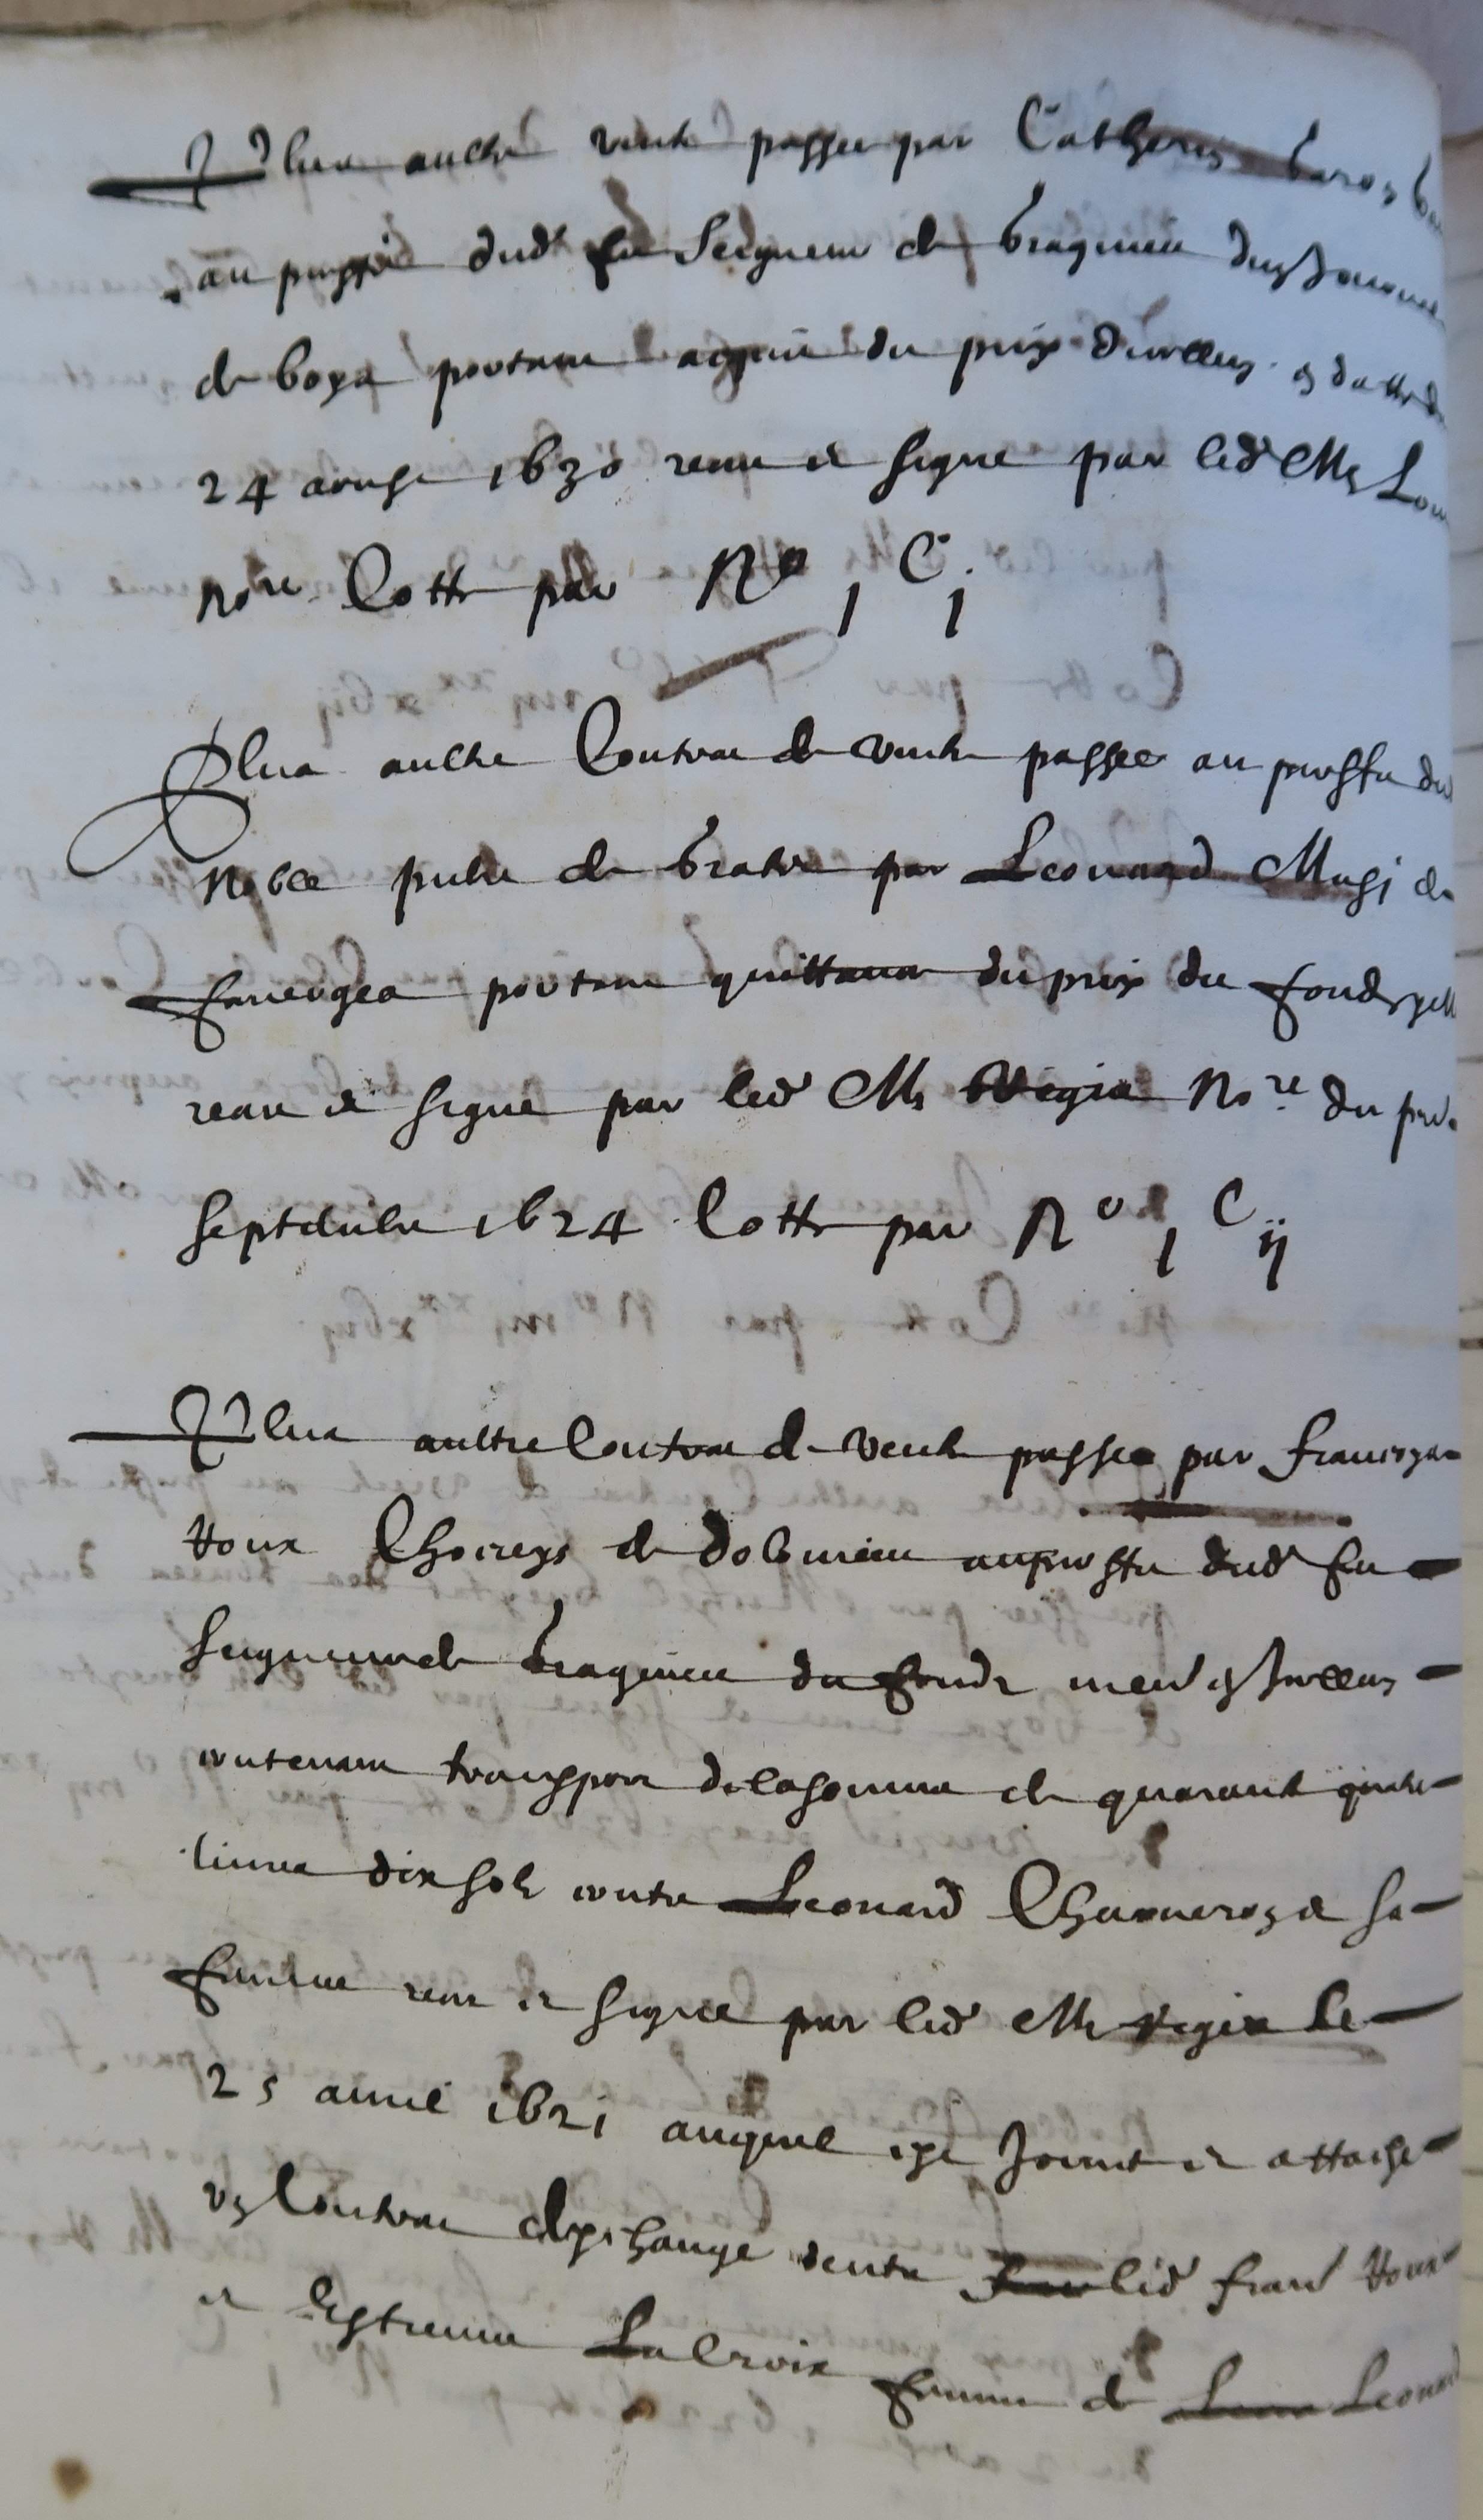 Plus aultre vente passee par Catherin baron
au proffit dud feu Seigneur de bragnieu
de boza portant acquit du prix d'icelluy
24 aougst 1630 receu et signe par led Me
nore Cotte par No j C j
Plus aultre Contrat de vente passee au proffit du
Noble pierre de bratie par Leonard Mugi de
faverges portant quittance du prix du fonds
receu et signe par led Me Regis Nore du
septembre 1624 Cotte par No j C ij
Plus aultre Contrat de vente passee par francoys
Roux de dolomieu au proffit dud feu
Seigneur de bragnieu du fonds
contenant transport de la somme de quarante quatre
livres dix solz contre Leonard et sa
femme receu et signe par led Me Regis le
25 avril 1621 auquel est joinct et attache
un Contrat d'eschange dentre led fran Roux
et Estienna La Croix femme de Leonard